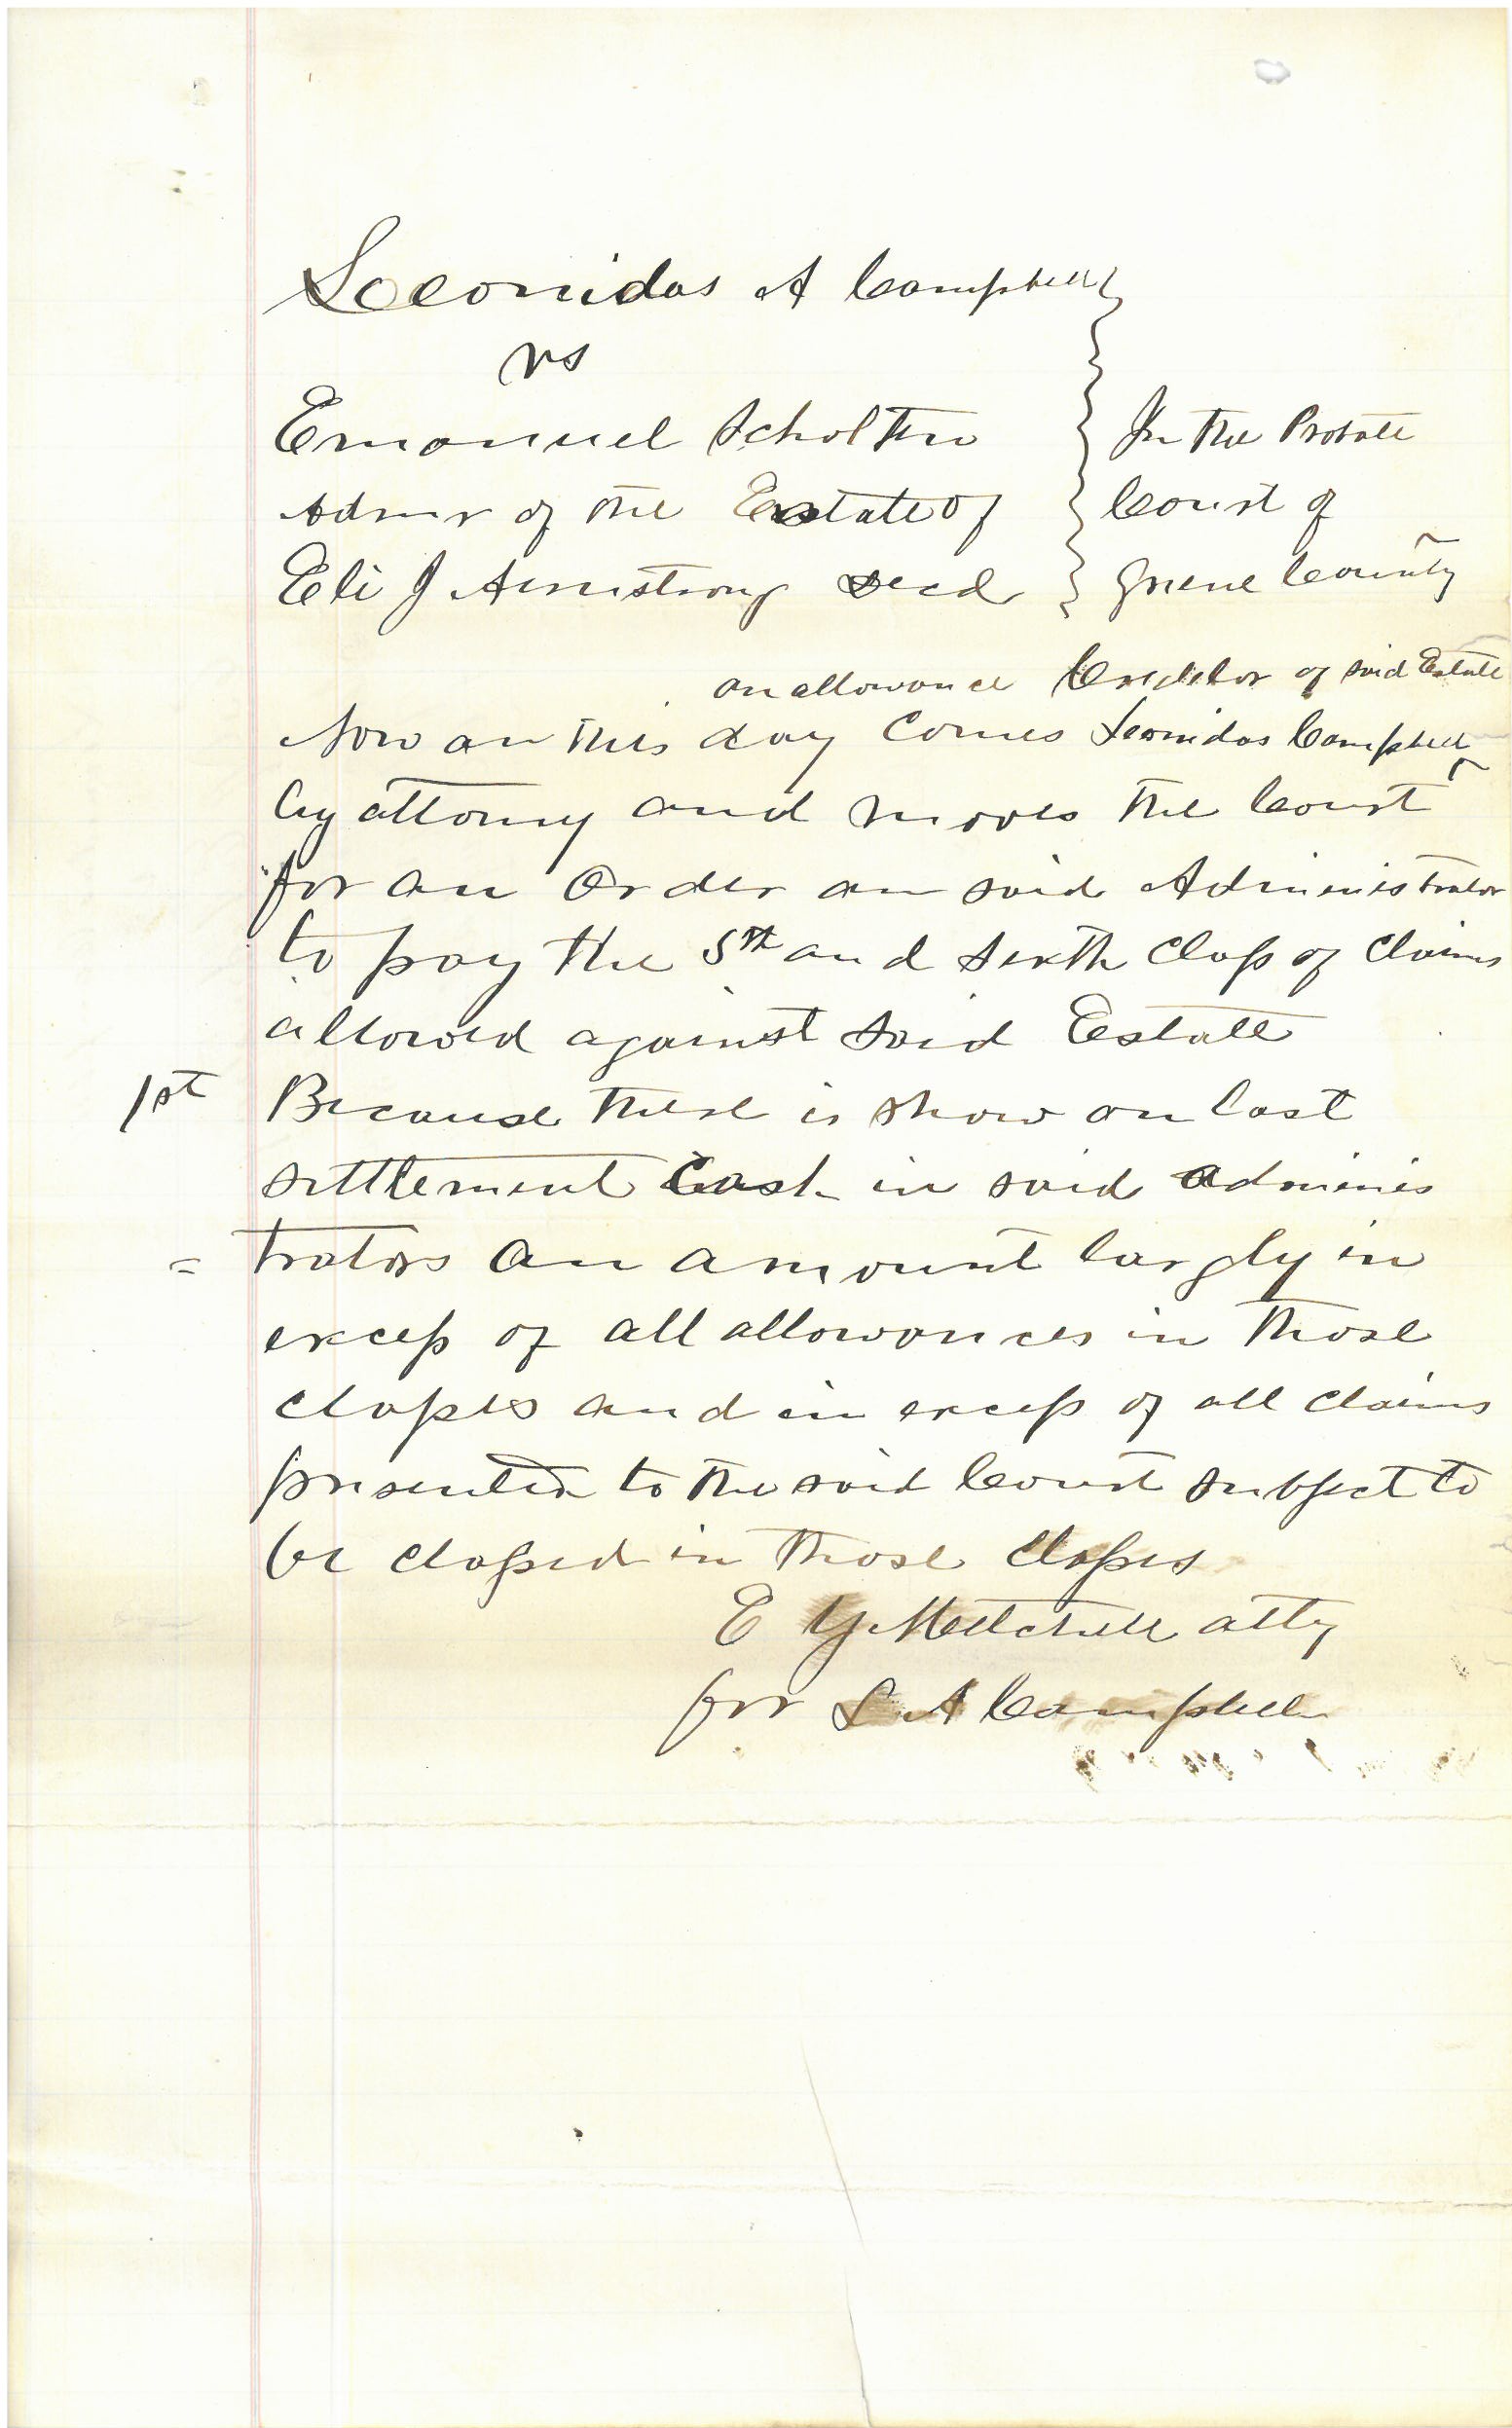 Leonidas A Campbell
vs
Emanuel Scholten
Admr of the Estate of
Eli J Armstrong decd
In the Probate
Court of
Greene County
an allowance Creditor of said Estate
Now on this day Comes Leonidas Campbell
by attorny and moves the Court
for an Order on said Administrator
to pay the 5th and sixth Class of Claims
allowed against said Estate
1st Because there is show on last
settlement Cash in said adminis
= trators an amount largly in
excess of all allowances in those
classes and in excess of all claims
presented to the said Court subject to
be classed in those classes
E Y Mitchell atty
for L A Campbell